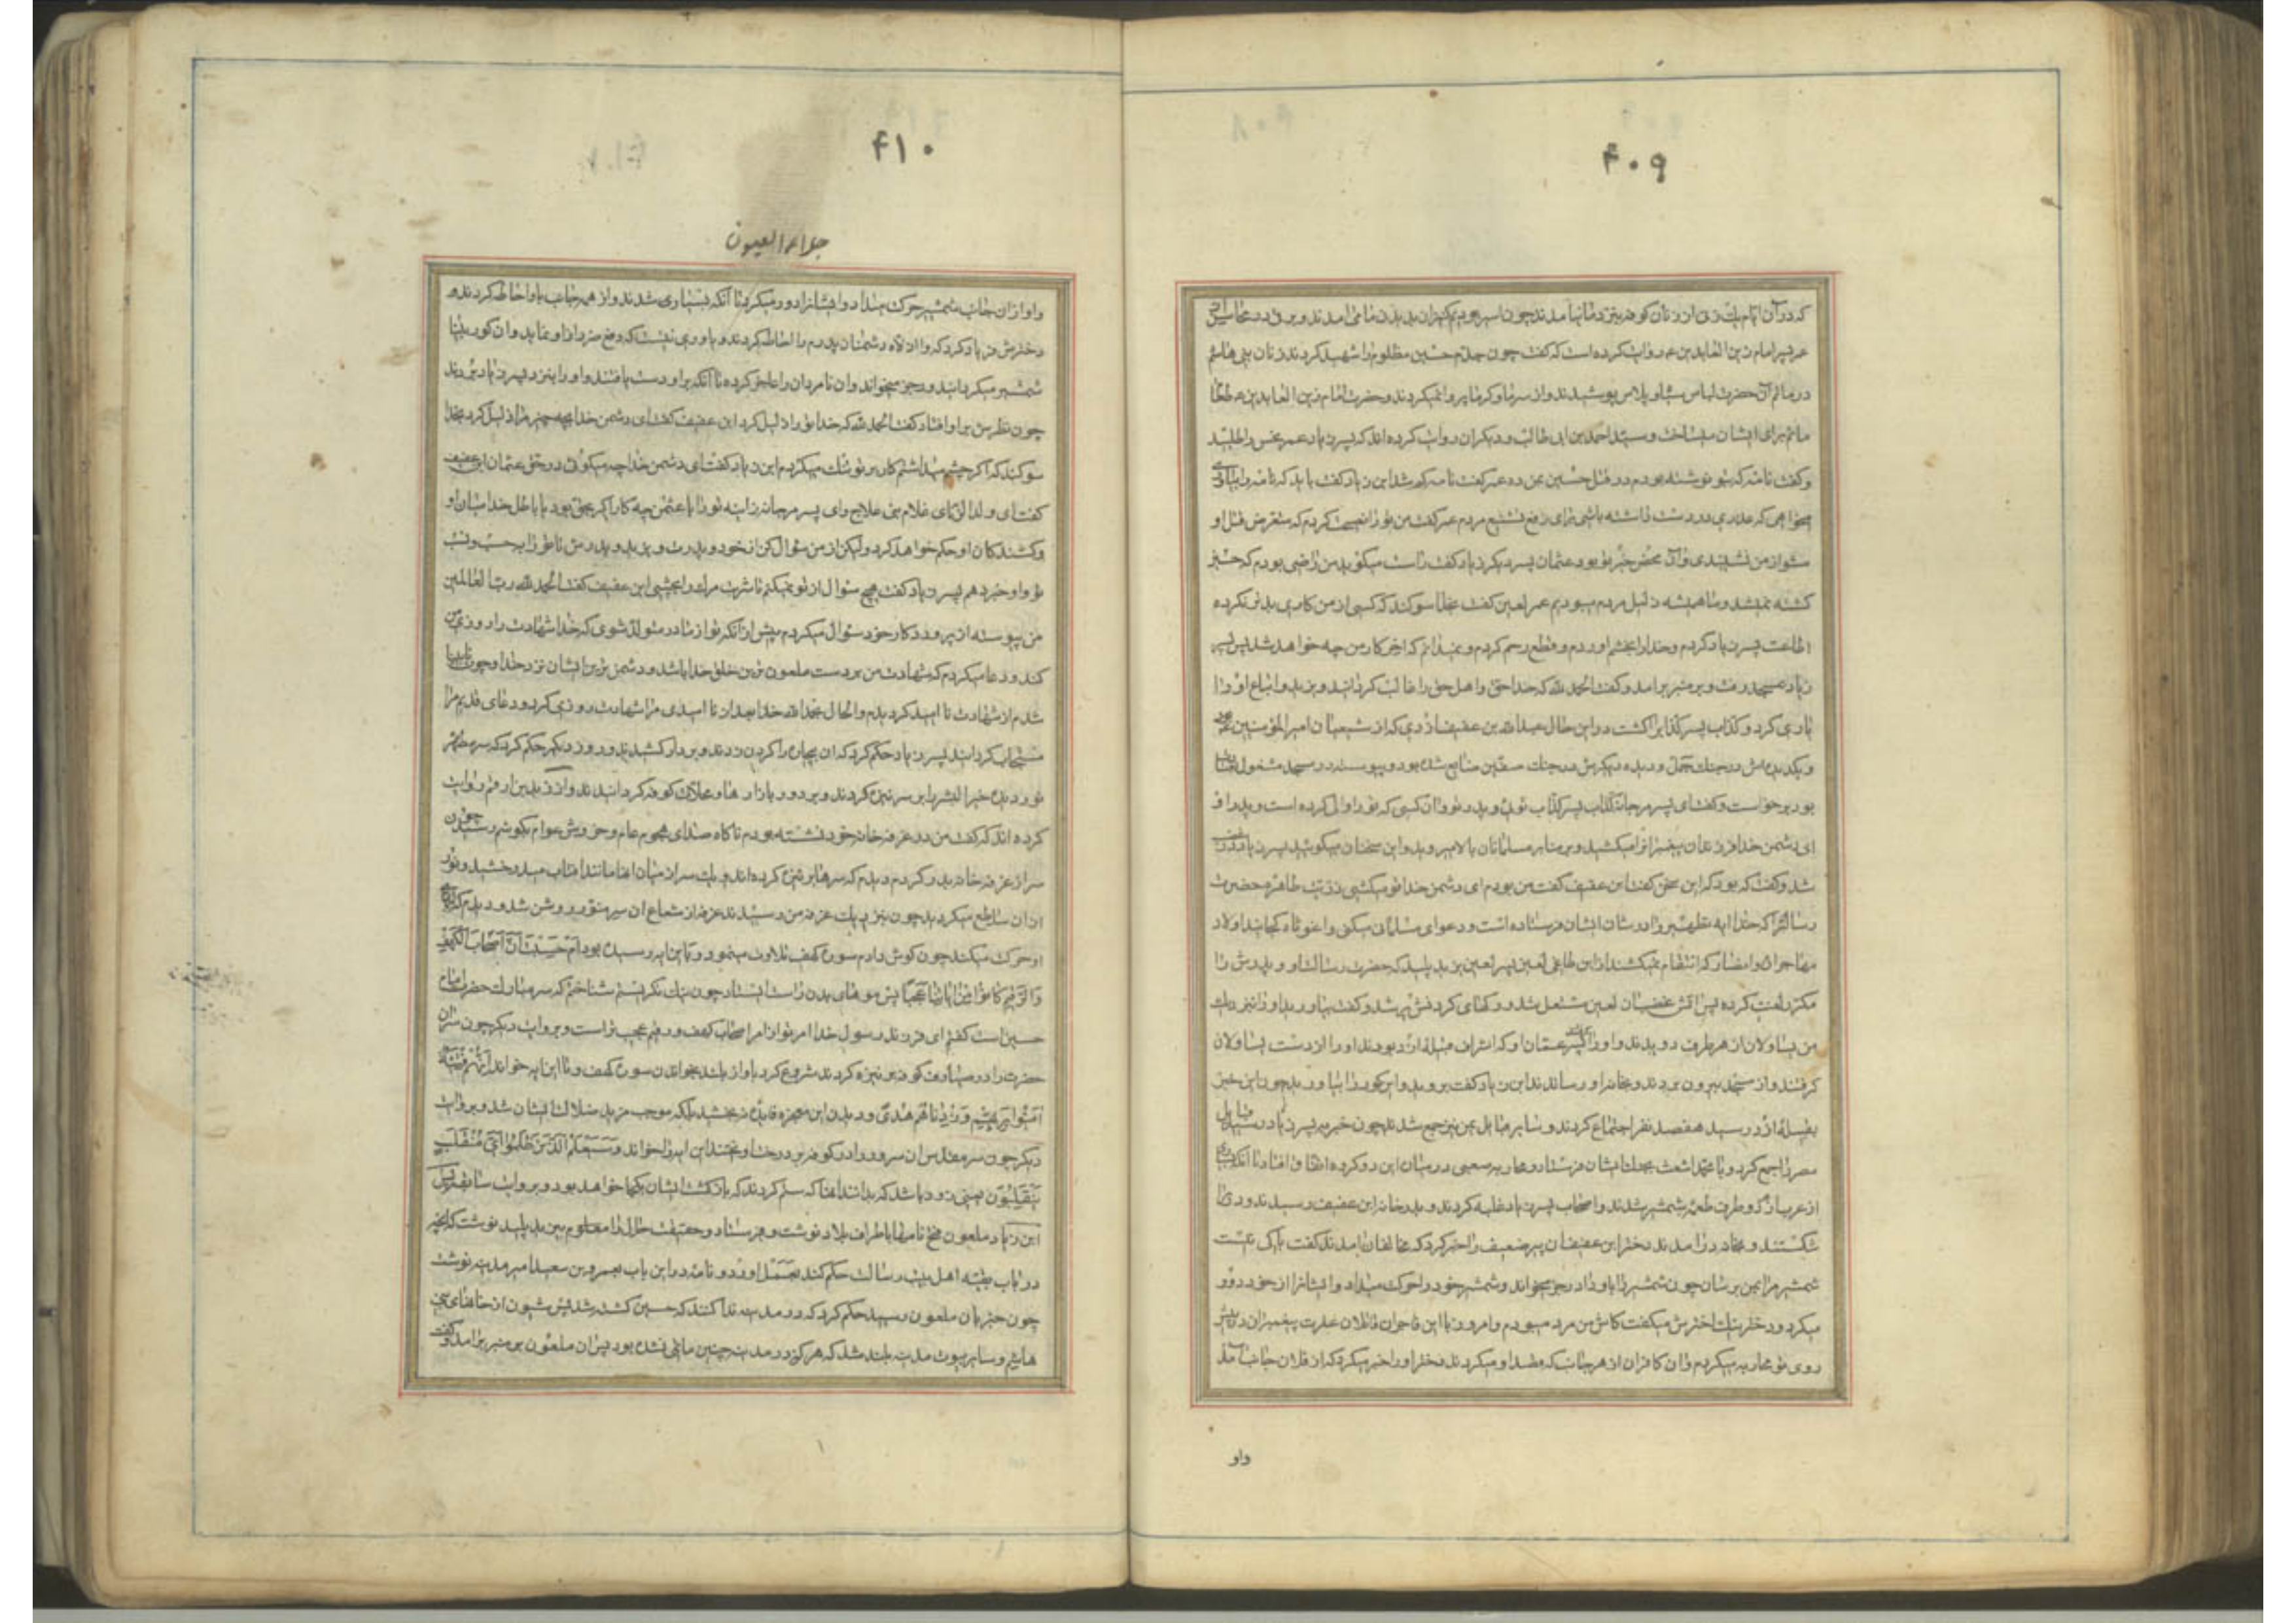 ۴۰۹
که در آن ایام یک زن از زنان کوفه بنزد ما نیامدند چون اسیر بودیم کنیزان بدیدن ما می‌آمدند و برقی در محاسن
عمر پسر امام زین العابدین ع روایت کرده است که گفت چون جدم حسین مظلوم را شهید کردند زنان بنی هاشم
در ماتم آن حضرت لباس سیاه و پلاس پوشیدند و از سرما و گرما پروا نمیکردند و حضرت امام زین العابدین ع طعام
ماتم برای ایشان میساخت و سید احمد بن ابی طالب و دیگران روایت کرده اند که پسر زیاد عمر نحس را طلبید
و گفت نامه که بتو نوشته بودم در قتل حسین بمن ده عمر گفت نامه گم شد ابن زیاد گفت باید که نامه را بیاوری
میخواهی که عذری در دست داشته باشی برای رفع تشنیع مردم عمر گفت من تو را نصیحت کردم که متعرض قتل او
مشو از من نشنیدی و آن محض خیر تو بود عثمان پسر دیگر زیاد گفت راست میگوید من راضی بودم که حسین
کشته نمیشد و ما همیشه ذلیل مردم میبودیم عمر لعین گفت بخدا سوگند که کسی از من کاری بدتر نکرده
اطاعت پسر زیاد کردم و خدا را بخشم آوردم و قطع رحم کردم و نمیدانم که اخر کار من چه خواهد شد پس پسر
زیاد بمسجد رفت و بر منبر برآمد و گفت الحمد لله که خدا حق و اهل حق را غالب گردانید و یزید و اتباع او را
یاری کرد و کذاب پسر کذاب را کشت در این حال عبدالله بن عفیف ازدی که از شیعیان امیر المؤمنین بود
و یک دیده‌اش در جنگ جمل و دیده دیگرش در جنگ صفین ضایع شده بود و پیوسته در مسجد مشغول عبادت
بود برخواست و گفت ای پسر مرجانه کذاب پسر کذاب توئی و پدر تو و آن کسی که تو را والی کرده است و پدر او
ای دشمن خدا فرزندان پیغمبران را میکشید و بر منابر مسلمانان بالا میروید و این سخنان میگوئید پسر زیاد در غضب
شد و گفت که بود که این سخن گفت ابن عفیف گفت من بودم ای دشمن خدا تو میکشی ذریت طاهره حضرت
رسالت را که خدا ایه تطهیر را در شان ایشان فرستاده است و دعوای مسلمانی میکنی واغوثاه کجایند اولاد
مهاجران و انصار که انتقام نمیکشند از این طاغی لعین پسر لعین یزید پلید که حضرت رسالت او و پدرش را
مکرر لعنت کرده پس آتش غضب آن لعین مشتعل شد و رگهای گردنش پر شد و گفت بیاورید او را نزدیک
من یساولان از هر طرف دویدند و او را گرفتند عمان او که اشراف قبیله ازد بودند او را از دست یساولان
گرفتند و از مسجد بیرون بردند و بخانه او رساندند ابن زیاد گفت بروید و این کور را بیاورید چون این خبر
بقبیله ازد رسید هفصد نفر اجتماع کردند و سایر قبایل یمن نیز جمع شدند چون خبر به پسر زیاد رسید قبایل
مضر را جمع کرد و با محمد اشعث بجنگ ایشان فرستاد و محاربه صعبی در میان این دو گروه اتفاق افتاد تا آنکه
از عرب از دو طرف طعمه شمشیر شدند و اصحاب پسر زیاد غلبه کردند و بدر خانه ابن عفیف رسیدند و در را
شکستند و بخانه در آمدند دختر ابن عفیف آن پیر ضعیف را خبر کرد که مخالفان آمدند گفت باکی نیست
شمشیر مرا بمن برسان چون شمشیر را باو داد رجز میخواند و شمشیر خود را حرکت میداد و ایشانرا از خود دور
میکرد و دختر نیک اخترش میگفت کاش من مرد میبودم و امروز با این فاجران قاتلان عترت پیغمبران در پیش
روی تو محاربه میکردم و آن کافران از هر جانب که قصد او میکردند دختر او را خبر میکرد که از فلان جانب آمدند
واو
۴۱۰
جلاء العیون
و او از آن جانب شمشیر حرکت میداد و ایشانرا دور میکرد تا آنکه بسیاری شدند و از هر جانب باو احاطه کردند و
دخترش فریاد کرد که واذلاه دشمنان پدرم را احاطه کردند و یاوری نیست که دفع ضرر از او نماید و ان کور بینا
شمشیر میگردانید و رجز میخواند و ان نامردان را عاجز کرده تا آنکه بر او دست یافتند و او را بنزد پسر زیاد بردند
چون نظرش بر او افتاد گفت الحمد لله که خدا تو را ذلیل کرد ابن عفیف گفت ای دشمن خدا بچه چیز مرا ذلیل کرد بخدا
سوگند که اگر چشم میداشتم کار بر تو تنگ میکردم ابن زیاد گفت ای دشمن خدا چه میگوئی در حق عثمان ابن عفیف
گفت ای ولد الزنای غلام بنی علاج و ای پسر مرجانه زانیه تو را با عثمان چه کار اگر بحق بود یا باطل خدا میان او
و کشندگان او حکم خواهد کرد ولیکن از من سؤال کن از خود و پدرت و یزید و پدرش تا تو را بر حسب و نسب
تو و او خبر دهم پسر زیاد گفت هیچ سؤال از تو نمیکنم تا شربت مرگ را بچشی ابن عفیف گفت الحمد لله رب العالمین
من پیوسته از پروردگار خود سئوال میکردم پیش از آنکه تو از مادر متولد شوی که خدا شهادت را روزی من
کند و دعا میکردم که شهادت من بر دست ملعون ترین خلق خدا باشد و دشمن ترین ایشان نزد خدا و چون نابینا
شدم از شهادت نا امید گردیدم و الحال بحمد الله خدا بعد از نا امیدی مرا شهادت روزی کرد و دعای قدیم مرا
مستجاب گردانید پسر زیاد حکم کرد که ان بیچاره را گردن زدند و بر دار کشیدند و روز دیگر حکم کرد که سر مطهر
نور دیده خیر البشر را بر سر نیزه کردند و بر دور بازارها و محلات کوفه گردانیدند و از زید بن ارقم روایت
کرده اند که گفت من در غرفه خانه خود نشسته بودم ناگاه صدای هجوم عام و خروش عوام بگوشم رسید چون
سر از غرفه خانه بدر کردم دیدم که سرها بر نیزه کرده اند و یک سر از میان انها مانند افتاب میدرخشید و نور
از ان ساطع میگردید چون نزدیک غرفه من رسیدند غرفه از شعاع ان سر منور روشن شد و دیدم که لبهای
او حرکت میکند چون گوش دادم سوره کهف تلاوت مینمود و باین ایه رسیده بود أم حسبت أن أصحاب الکهف
والرقیم کانوا من آیاتنا عجبا پس موهای بدن راست ایستاد چون نیک نگریستم شناختم که سر مبارک حضرت امام
حسین است گفتم ای فرزند رسول خدا امر تو از امر اصحاب کهف و رقیم عجیب تر است و بروایت دیگر چون سر آن
حضرت را در میان کوفه بر نیزه کردند شروع کرد باواز بلند بخواندن سوره کهف و تا این ایه خواند إنهم فتیة
آمنوا بربهم وزدناهم هدی و دیدن این معجزه فایده نبخشید بلکه موجب مزید ضلالت ایشان شد و بروایت
دیگر چون سر مقدس آن سرور را در کوفه بر درخت آویختند این ایه را خواند وسیعلم الذین ظلموا أی منقلب
ینقلبون یعنی زود باشد که بدانند انها که ستم کردند که بازگشت ایشان بکجا خواهد بود و بروایت سابقه پس
ابن زیاد ملعون فتح نامها باطراف بلاد نوشت و فرستاد و حقیقت حال را معلوم یزید پلید نوشت که آنچه
در باب بقیه اهل بیت رسالت حکم کند بعمل اورد و نامه در این باب بعمرو بن سعید امیر مدینه نوشت
چون خبر بان ملعون رسید حکم کرد که در مدینه ندا کنند که حسین کشته شد پس شیون از خانهای بنی
هاشم و سایر بیوت مدینه بلند شد که هرگز در مدینه چنین ماتمی نشده بود پس ان ملعون بر منبر برآمد و گفت